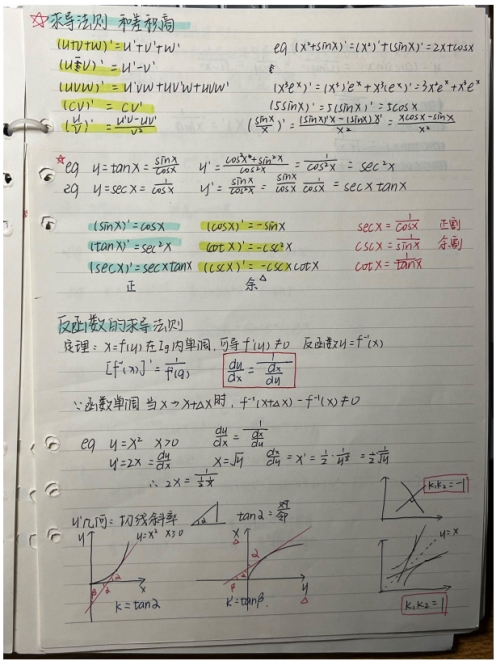 ☆求导法则 和差积商
(u+v+w)'=u'+v'+w' eg (x²+sinx)'=(x²)'+(sinx)'=2x+cosx
(u-v)'=u'-v'
(uvw)'=u'vw+uv'w+uvw' (x³eˣ)'=(x³)'eˣ+x³(eˣ)'=3x²eˣ+x³eˣ
(cv)'=cv' (5sinx)'=5(sinx)'=5cosx
(u/v)'=(u'v-uv')/v² (sinx/x)'=((sinx)'x-(sinx)x')/x²=(xcosx-sinx)/x²
☆eg y=tanx=sinx/cosx y'=(cos²x+sin²x)/cos²x=1/cos²x=sec²x
eg y=secx=1/cosx y'=sinx/cos²x=sinx/cosx 1/cosx=secx tanx
(sinx)'=cosx (cosx)'=-sinx secx=1/cosx 正割
(tanx)'=sec²x (cotx)'=-csc²x cscx=1/sinx 余割
(secx)'=secxtanx (cscx)'=-cscxcotx cotx=1/tanx
正 余△
反函数的求导法则
定理:x=f(y)在Iy内单调,可导f'(y)≠0 反函数y=f⁻¹(x)
[f⁻¹(x)]'=1/f'(y) dy/dx=1/(dx/dy)
∵函数单调 当x→x+△x时,f⁻¹(x+△x)-f⁻¹(x)≠0
eg y=x² x>0 dy/dx=1/(dx/dy)
y'=2x=dy/dx x=√y dx/dy=x'=1/2·1/y^½=½1/√y
∴2x=1/(½1/x)
k₁k₂=-1
y'几何=切线斜率 α tanα=对/邻
y y=x² x≥0 x△ α y=x
β α x β y△
k=tanα k'=tanβ
k₁k₂=1